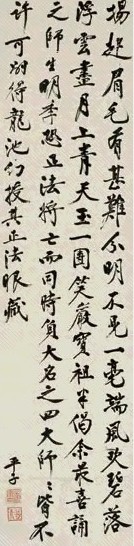 場起眉毛有甚難分明不見一毫端風吹碧落
浮雲盡月上青天玉一團笑巖寶祖半偈余最喜誦
之師生明季恐正法將亡而同時負大名之四大師皆不
許可別得龍池幻授其正法眼藏
平子